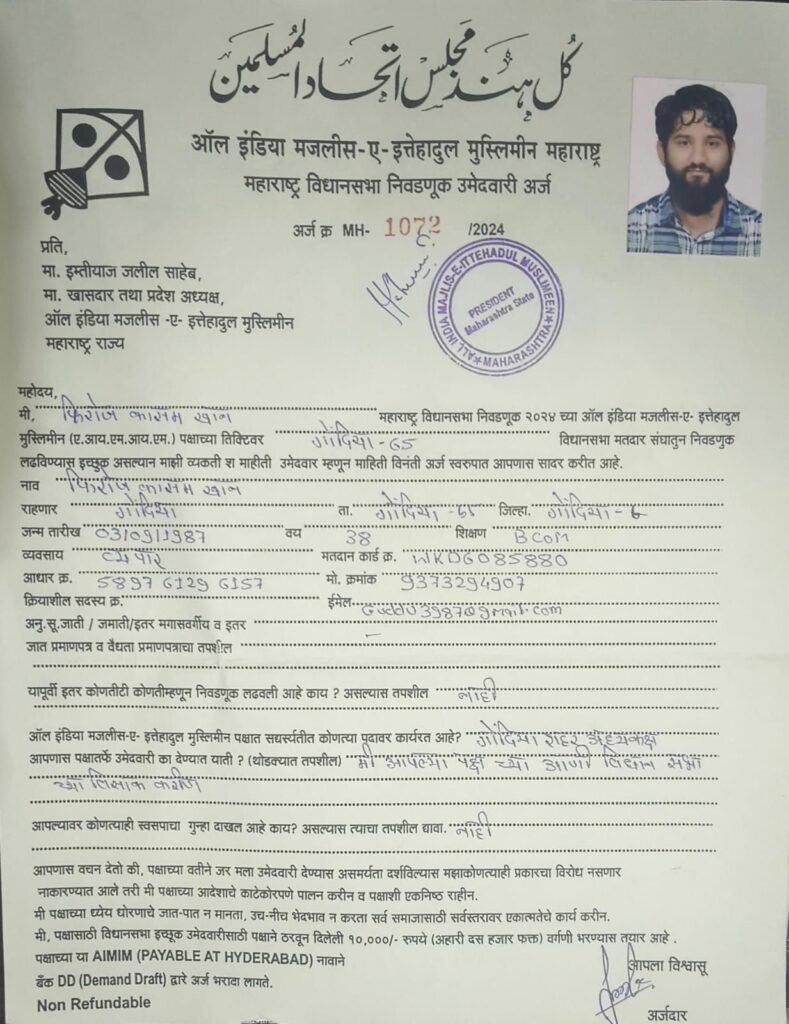 کُل ہند مجلس اتحاد المسلمین
ऑल इंडिया मजलीस-ए-इत्तेहादुल मुस्लिमीन महाराष्ट्र
महाराष्ट्र विधानसभा निवडणूक उमेदवारी अर्ज
अर्ज क्र MH- 1072 /2024
प्रति,
मा. इम्तीयाज जलील साहेब,
मा. खासदार तथा प्रदेश अध्यक्ष,
ऑल इंडिया मजलीस -ए- इत्तेहादुल मुस्लिमीन
महाराष्ट्र राज्य
ALL INDIA MAJLIS-E-ITTEHADUL MUSLIMEEN
PRESIDENT
Maharashtra State
MAHARASHTRA
महोदय,
मी, फिरोज कासम खान महाराष्ट्र विधानसभा निवडणूक २०२४ च्या ऑल इंडिया मजलीस-ए- इत्तेहादुल
मुस्लिमीन (ए.आय.एम.आय.एम.) पक्षाच्या तिक्टिवर गोंदिया-65 विधानसभा मतदार संघातुन निवडणुक
लढविण्यास इच्छुक असल्यान माझी व्यकती श माहीती उमेदवार म्हणून माहिती विनंती अर्ज स्वरुपात आपणास सादर करीत आहे.
नाव फिरोज कासम खान
राहणार गोंदिया ता. गोंदिया-65 जिल्हा. गोंदिया-
जन्म तारीख 03/09/1987 वय 38 शिक्षण BCOM
व्यवसाय व्यपार मतदान कार्ड क्र. WKD6085880
आधार क्र. 5897 6129 6157 मो. क्रमांक 9373294907
क्रियाशील सदस्य क्र. ईमेल Guddu3987@gmail.com
अनु.सू.जाती / जमाती/इतर मगासवर्गीय व इतर
जात प्रमाणपत्र व वैधता प्रमाणपत्राचा तपशील
यापूर्वी इतर कोणतीटी कोणतीम्हणून निवडणूक लढवली आहे काय ? असल्यास तपशील नाही
ऑल इंडिया मजलीस-ए- इत्तेहादुल मुस्लिमीन पक्षात सधर्स्यतीत कोणत्या पुदावर कार्यरत आहे? गोंदिया शहर अध्यक्ष
आपणास पक्षातर्फे उमेदवारी का देण्यात याती ? (थोडक्यात तपशील) मी आपल्या पक्ष च्या आणी विधान सभा
च्या करीण
आपल्यावर कोणत्याही स्वसपाचा गुन्हा दाखल आहे काय? असल्यास त्याचा तपशील द्यावा. नाही
आपणास वचन देतो की, पक्षाच्या वतीने जर मला उमेदवारी देण्यास असमर्यता दर्शविल्यास मझाकोणत्याही प्रकारचा विरोध नसणार
नाकारण्यात आले तरी मी पक्षाच्या आदेशाचे काटेकोरपणे पालन करीन व पक्षाशी एकनिष्ठ राहीन.
मी पक्षाच्या ध्येय धोरणाचे जात-पात न मानता, उच-नीच भेदभाव न करता सर्व समाजासाठी सर्वस्तरावर एकात्मतेचे कार्य करीन.
मी, पक्षासाठी विधानसभा इच्छूक उमेदवारीसाठी पक्षाने ठरवून दिलेली १०,०००/- रुपये (अहारी दस हजार फक्त) वर्गणी भरण्यास तयार आहे .
पक्षाच्या या AIMIM (PAYABLE AT HYDERABAD) नावाने
बँक DD (Demand Draft) द्वारे अर्ज भरादा लागते.
Non Refundable
आपला विश्वासू
अर्जदार